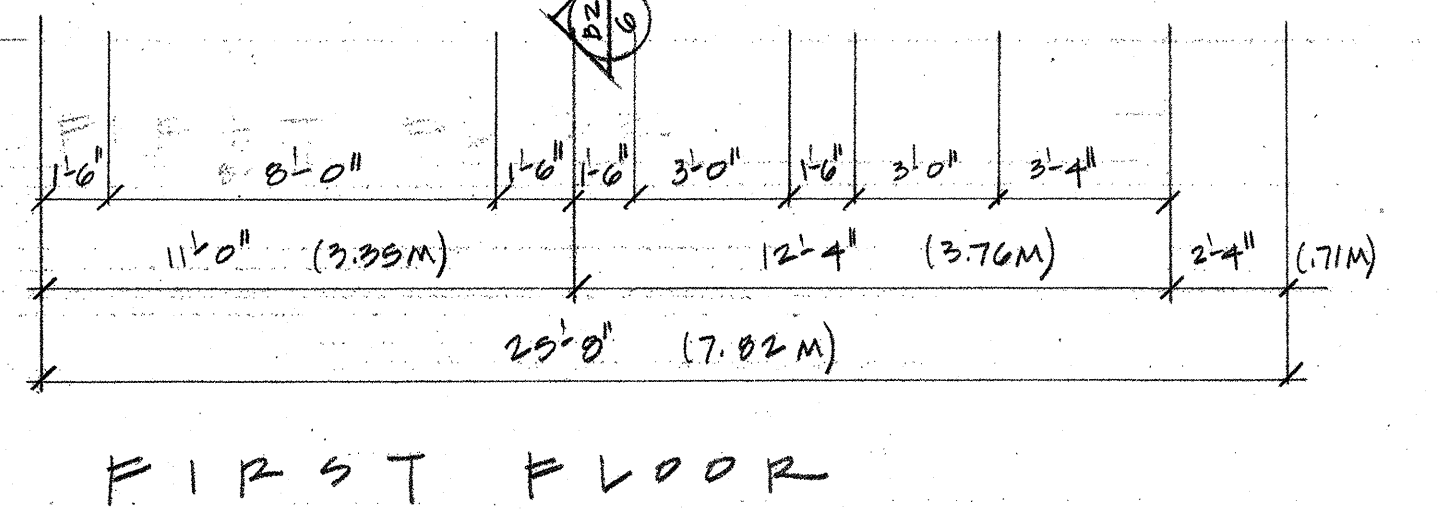 B2
6
1'-6" 8'-0" 1'-6" 1'-6" 3'-0" 1'-6" 3'-0" 3'-4"
11'-0" (3.35M) 12'-4" (3.76M) 2'-4" (.71M)
25'-8" (7.82M)
FIRST FLOOR